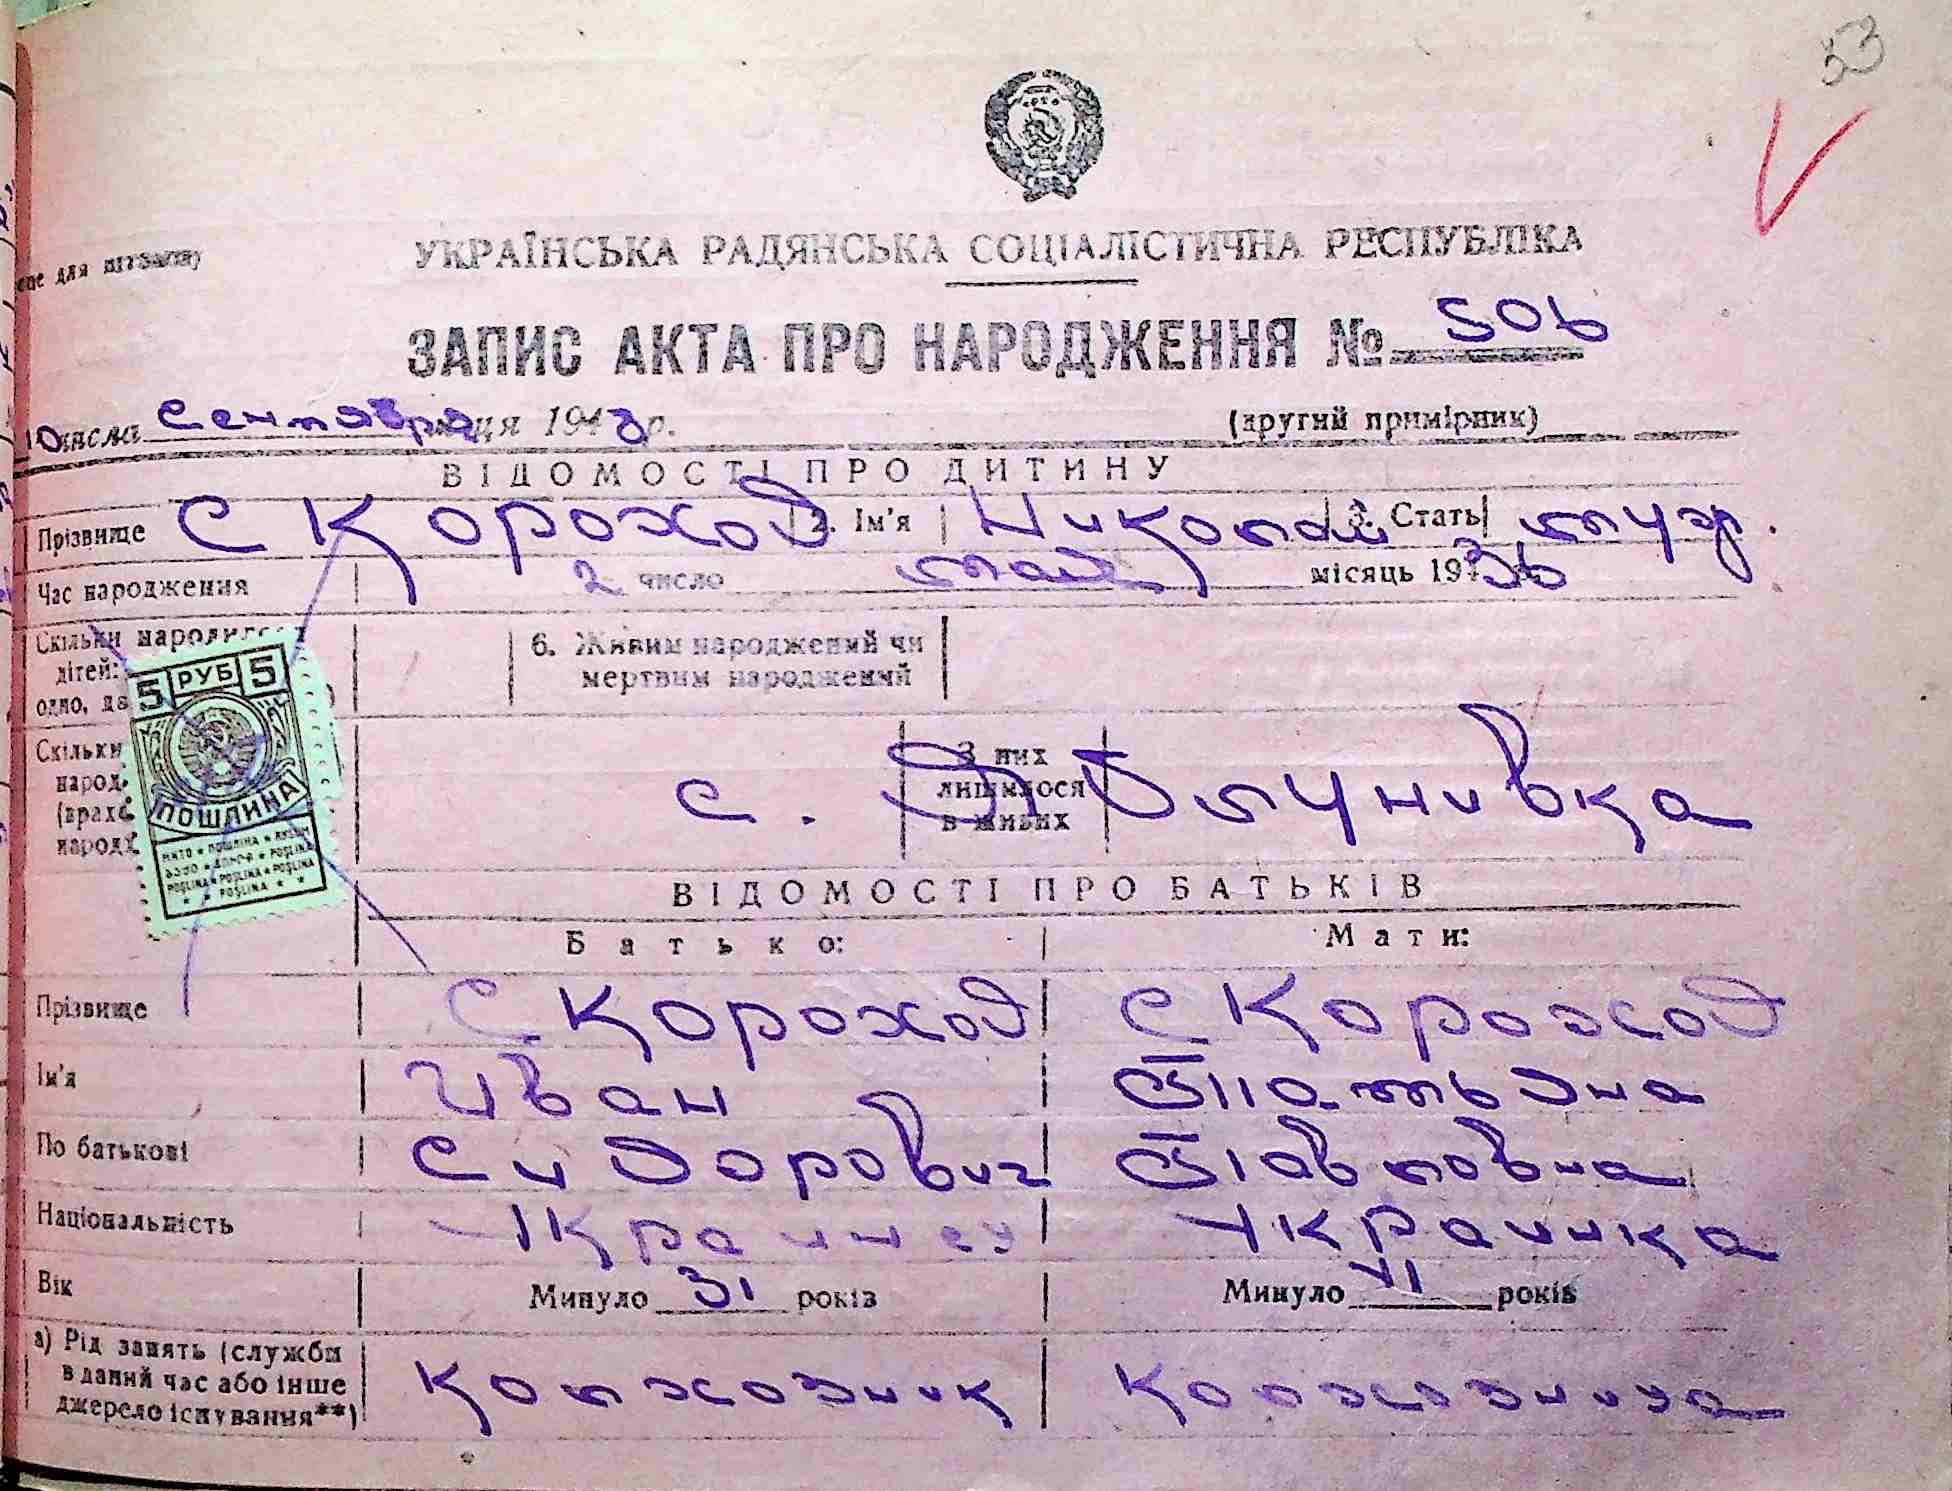 53
УКРАЇНСЬКА РАДЯНСЬКА СОЦІАЛІСТИЧНА РЕСПУБЛІКА
ЗАПИС АКТА ПРО НАРОДЖЕННЯ № 506
10 числа сентября місяця 1943 р. (другий примірник)
ВІДОМОСТІ ПРО ДИТИНУ
Прізвище Скороход 2. Ім'я Николай 3. Стать муж.
Час народження 2 число мая місяць 1936
Скільки народилося
дітей:
одно,
6. Живим народжений чи
мертвим народжений
5 РУБ 5
ПОШЛИНА
Скільки
народ
народж
З них
лишилося
в живих
с.
ВІДОМОСТІ ПРО БАТЬКІВ
Батько: Мати:
Прізвище Скороход Скороход
Ім'я Иван Татьяна
По батькові Сидорович Павловна
Національність Украинец Украинка
Вік Минуло 31 років Минуло років
а) Рід занять (служби
в даний час або інше
джерело існування**)
Колхозник Колхозница